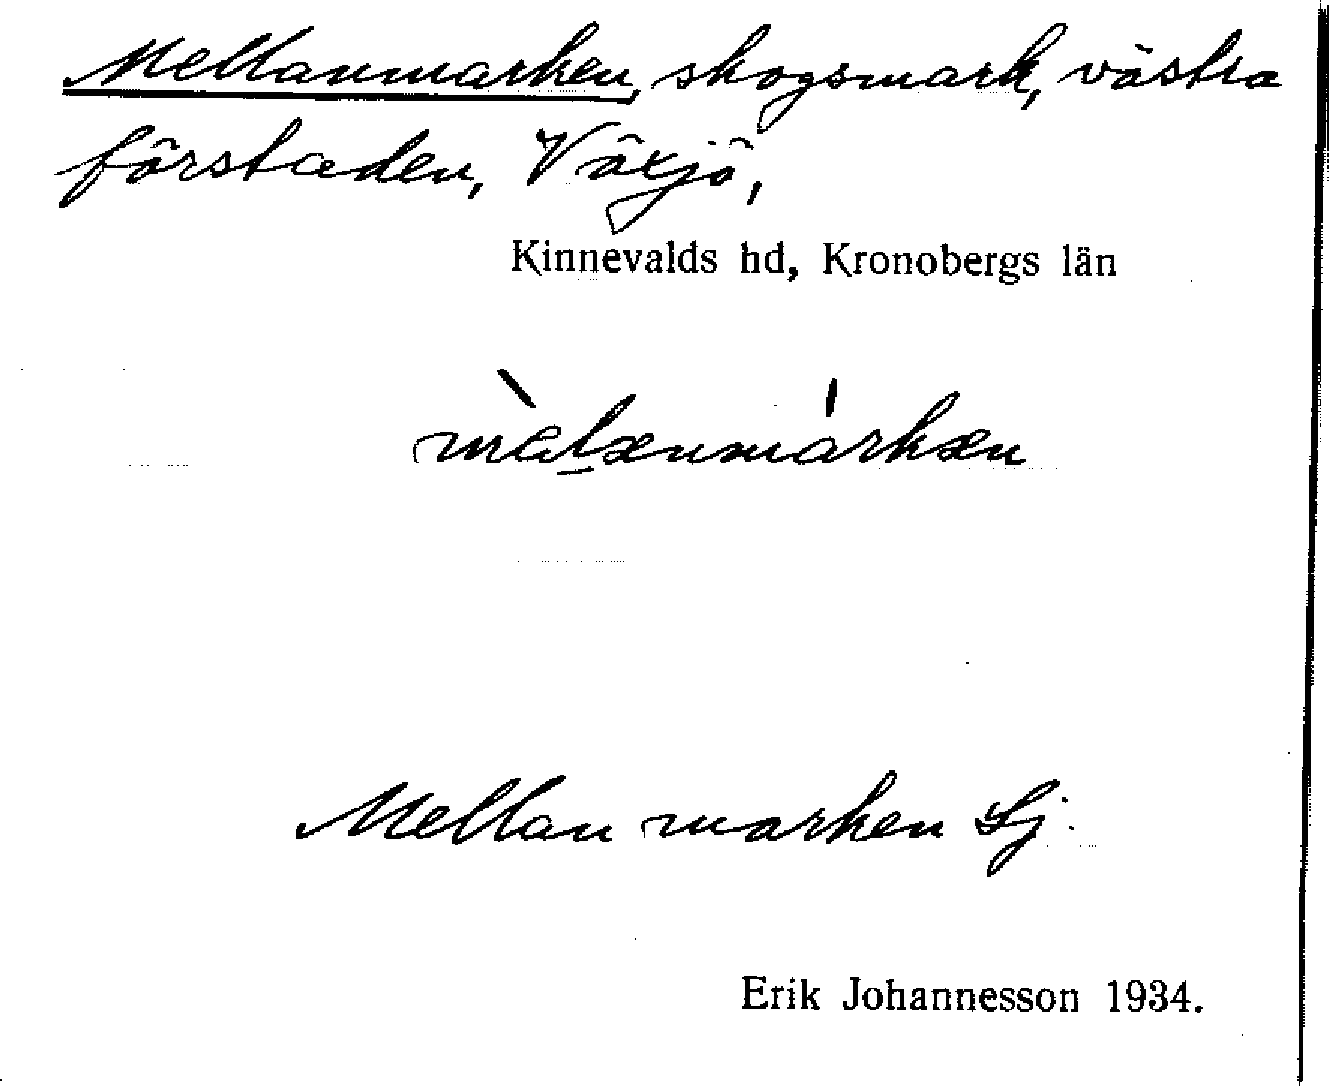 Mellanmarken, skogsmark, västra
förstaden, Växjö,
Kinnevalds hd, Kronobergs län
mèlænmárkæn
Mellanmarken Lj.
Erik Johannesson 1934.